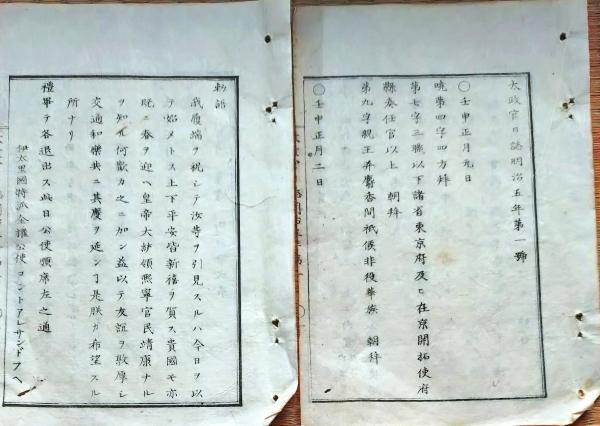 太政官日誌明治五年第一號
○壬申正月元日
曉第四字四方拜
第七字三職以下諸省東京府及ヒ在京開拓使府
縣奏任官以上　朝拜
第九字親王幷麝香間祗候非役華族　朝拜
○壬申正月二日
勅語
歲履端ヲ祝シテ汝等ヲ引見スルハ今日ヲ以
テ始メトス上下平安皆新禧ヲ賀ス貴國モ亦
既ニ春ヲ迎ヘ皇帝大紗領熈寧官民靖康ナル
ヲ知ル何歡カ之ニ加ン益以テ友誼ヲ敦厚シ
交通和樂共ニ其慶ヲ延ン丁是朕カ希望スル
所ナリ
禮畢テ各退出ス此日公使順席左之通
伊太里國特派全權公使コントアレサンドフヘ